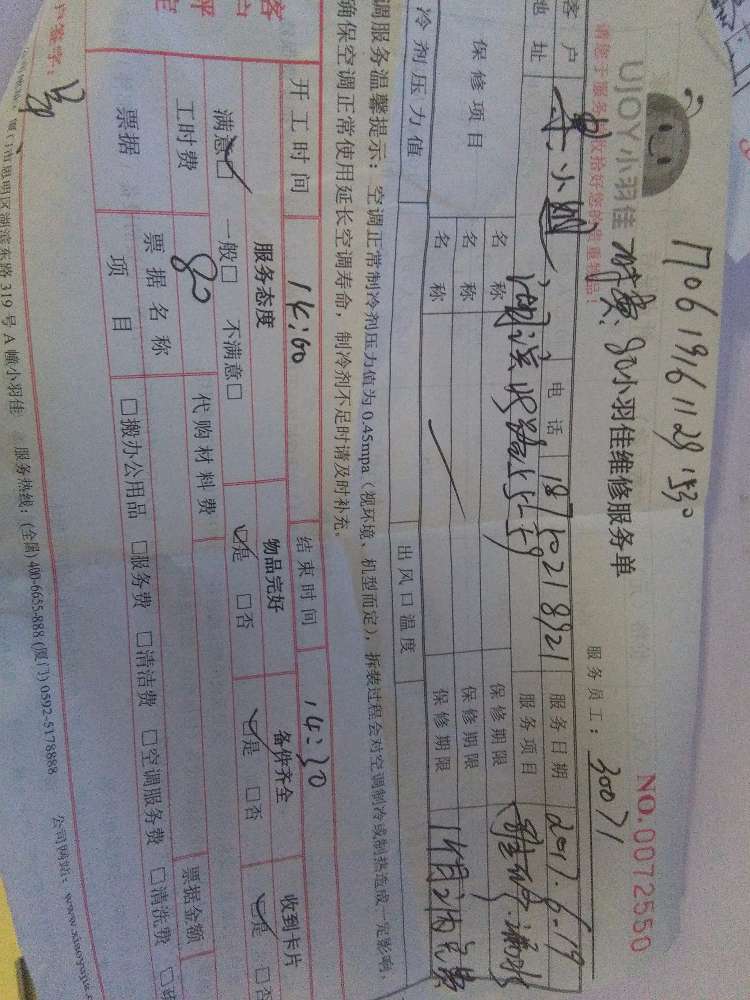 1706191611281530
UJOY小羽佳
请您于服务前收拾好您的贵重物品!
小羽佳维修服务单
服务员工: 30071
NO.0072550
客户 李小姐 电话 18710218921 服务日期 2017.6.19
地址 服务项目
保修项目 名称 保修期限
名称 保修期限
名称 保修期限 1个月之内免费
冷剂压力值 出风口温度
调服务温馨提示: 空调正常制冷剂压力值为 0.45mpa (视环境、机型而定), 拆装过程会对空调制冷或制热造成一定影响,
确保空调正常使用延长空调寿命, 制冷剂不足时请及时补充。
开工时间 14:00 结束时间 14:30
服务态度 物品完好 备件齐全 收到卡片
满意☑ 一般□ 不满意□ ☑是 □否 ☑是 □否 ☑是 □否
工时费 80 代购材料费 票据金额
票据 票据名称
项目 □搬办公用品 □服务费 □清洁费 □空调服务费 □清洗费
签字:
门市思明区湖滨东路 319 号 A 幢小羽佳 服务热线: (全国) 400-6655-888 (厦门) 0592-5178888 公司网站: www.xiaoyujia.c